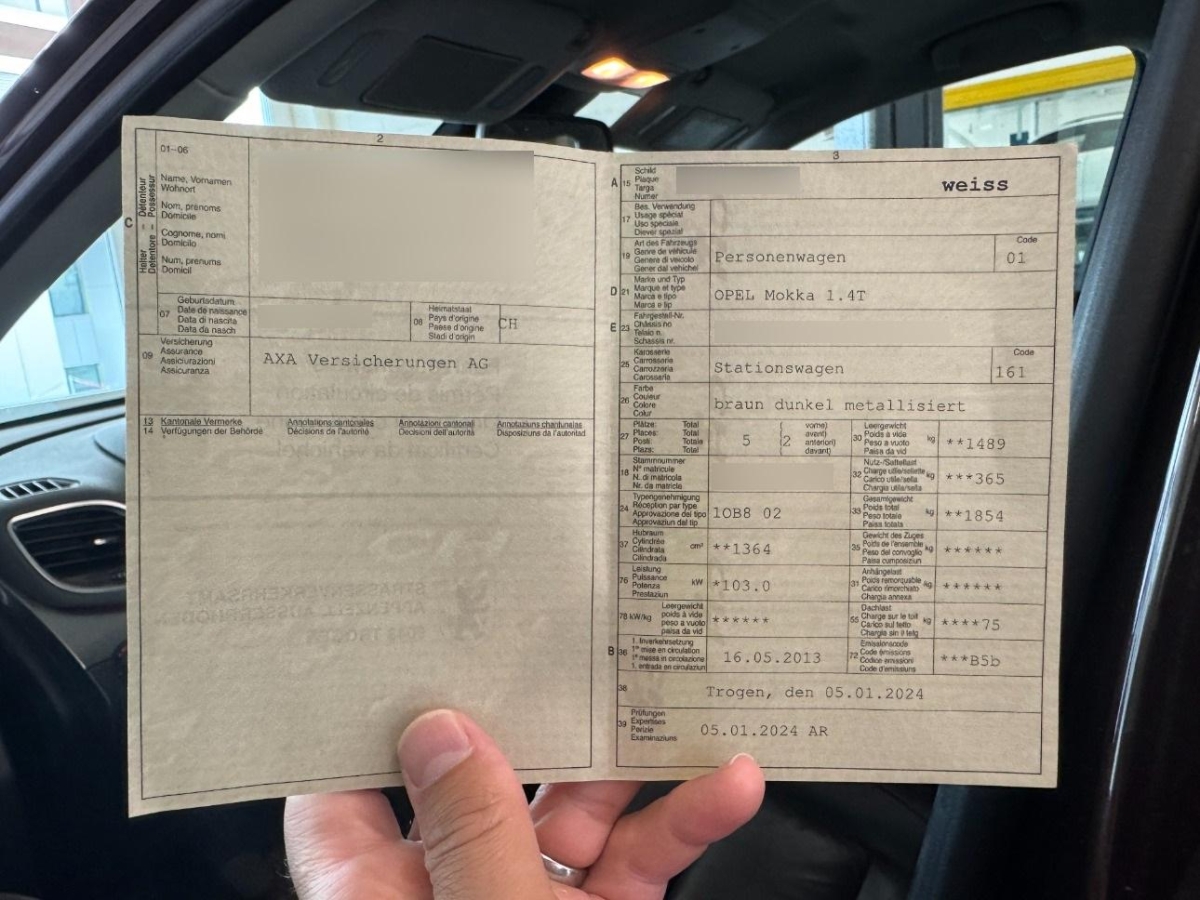 2
01–06
Name, Vornamen
Wohnort
Nom, prénoms
Domicile
Cognome, nomi
Domicilio
Num, prenums
Domicil
C
Halter – Détenteur
Detentore – Possessur
07
Geburtsdatum
Date de naissance
Data di nascita
Data da nasch
08
Heimatstaat
Pays d'origine
Paese d'origine
Stadi d'origin
CH
09
Versicherung
Assurance
Assicurazioni
Assicuranza
AXA Versicherungen AG
13
14
Kantonale Vermerke
Verfügungen der Behörde
Annotations cantonales
Décisions de l'autorité
Annotazioni cantonali
Decisioni dell'autorità
Annotaziuns chantunalas
Disposiziuns da l'autoritad
3
A
15
Schild
Plaque
Targa
Numer
weiss
17
Bes. Verwendung
Usage spécial
Uso speciale
Diever spezial
19
Art des Fahrzeugs
Genre de véhicule
Genere di veicolo
Gener dal vehichel
Personenwagen
Code
01
D
21
Marke und Typ
Marque et type
Marca e tipo
Marca e tip
OPEL Mokka 1.4T
E
23
Fahrgestell-Nr.
Châssis no
Telaio n.
Schassis nr.
25
Karosserie
Carrosserie
Carrozzeria
Carossaria
Stationswagen
Code
161
26
Farbe
Couleur
Colore
Colur
braun dunkel metallisiert
27
Plätze: Total
Places: Total
Posti: Totale
Plazs: Total
5
(2
vorne)
avant)
anteriori)
davant)
30
Leergewicht
Poids à vide
Peso a vuoto
Paisa da vid
kg
**1489
18
Stammnummer
N° matricule
N. di matricola
Nr. da matricla
32
Nutz-/Sattellast
Charge utile/sellette
Carico utile/sella
Chargia utila/sella
kg
***365
24
Typengenehmigung
Réception par type
Approvazione del tipo
Approvaziun dal tip
1OB8 02
33
Gesamtgewicht
Poids total
Peso totale
Paisa totala
kg
**1854
37
Hubraum
Cylindrée
Cilindrata
Cilindrada
cm³
**1364
35
Gewicht des Zuges
Poids de l'ensemble
Peso del convoglio
Paisa cumposiziun
kg
******
76
Leistung
Puissance
Potenza
Prestaziun
kW
*103.0
31
Anhängelast
Poids remorquable
Carico rimorchiato
Chargia annexa
kg
******
78 kW/kg
Leergewicht
poids à vide
peso a vuoto
paisa da vid
******
55
Dachlast
Charge sur le toit
Carico sul tetto
Chargia sin il tetg
kg
****75
B
36
1. Inverkehrsetzung
1re mise en circulation
1a messa in circolazione
1. entrada en circulaziun
16.05.2013
72
Emissionscode
Code émissions
Codice emissioni
Code d'emissiuns
***B5b
38
Trogen, den 05.01.2024
39
Prüfungen
Expertises
Perizie
Examinaziuns
05.01.2024 AR